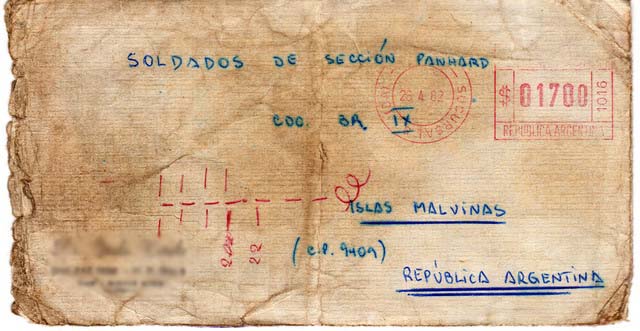 SOLDADOS DE SECCIÓN PANHARD
26.4.82
SUCURSAL
$ 01700 1016
REPUBLICA ARGENTINA
CDO. BR IX
ISLAS MALVINAS
22
(C.P. 9409)
REPÚBLICA ARGENTINA